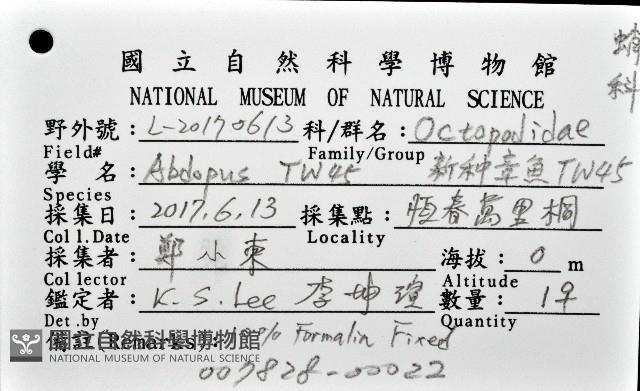 蛸
科
國立自然科學博物館
NATIONAL MUSEUM OF NATURAL SCIENCE
野外號：L-20170613 科/群名：Octopodidae
Field# Family/Group
學 名：Abdopus TW45 新種章魚TW45
Species
採集日：2017.6.13 採集點：恆春萬里桐
Col l.Date Locality
採集者：鄭小東 海拔：0 m
Col lector Altitude
鑑定者：K.S.Lee 李坤瑄 數量：1♀
Det .by Quantity
備註(Remarks)：10% Formalin Fixed
國立自然科學博物館
NATIONAL MUSEUM OF NATURAL SCIENCE
007828-00022